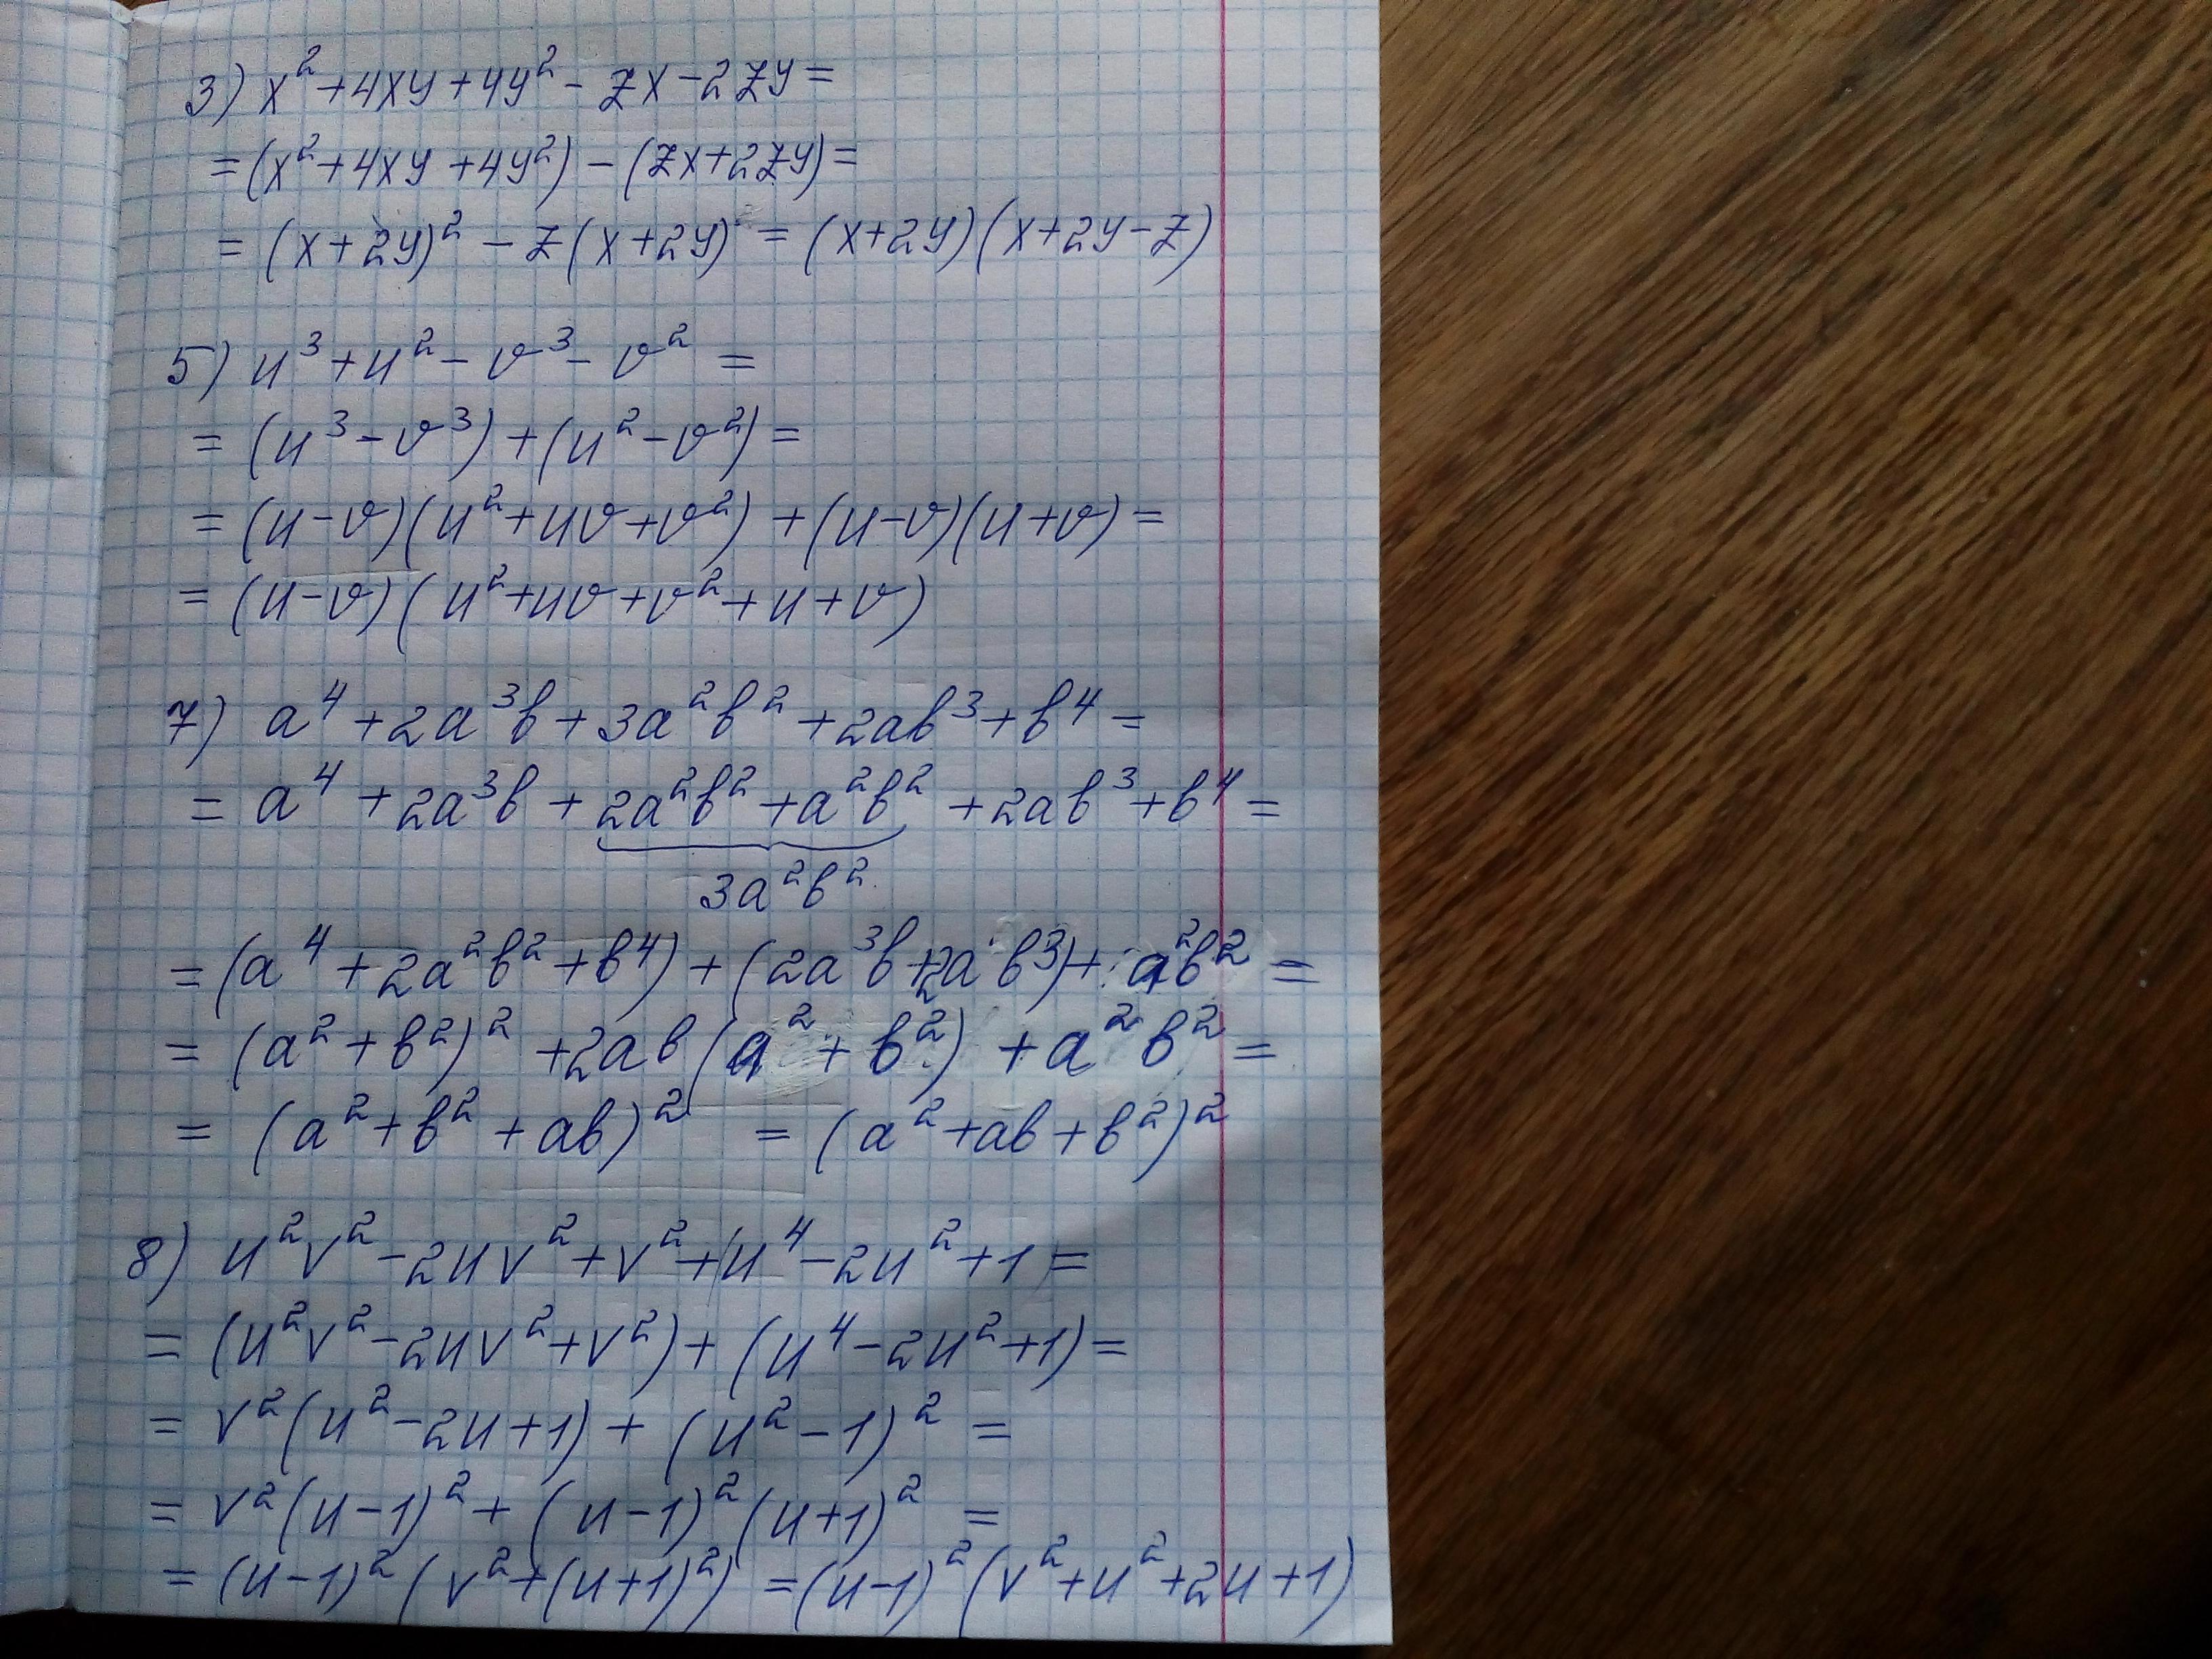 3) x² + 4xy + 4y² - zx - 2zy =
= (x² + 4xy + 4y²) - (zx + 2zy) =
= (x + 2y)² - z(x + 2y) = (x + 2y)(x + 2y - z)
5) u³ + u² - v³ - v² =
= (u³ - v³) + (u² - v²) =
= (u - v)(u² + uv + v²) + (u - v)(u + v) =
= (u - v)(u² + uv + v² + u + v)
7) a⁴ + 2a³b + 3a²b² + 2ab³ + b⁴ =
= a⁴ + 2a³b + 2a²b² + a²b² + 2ab³ + b⁴ =
3a²b²
= (a⁴ + 2a²b² + b⁴) + (2a³b + 2ab³) + a²b² =
= (a² + b²)² + 2ab(a² + b²) + a²b² =
= (a² + b² + ab)² = (a² + ab + b²)²
8) u²v² - 2uv² + v² + u⁴ - 2u² + 1 =
= (u²v² - 2uv² + v²) + (u⁴ - 2u² + 1) =
= v²(u² - 2u + 1) + (u² - 1)² =
= v²(u - 1)² + (u - 1)²(u + 1)² =
= (u - 1)²(v² + (u + 1)²) = (u - 1)²(v² + u² + 2u + 1)